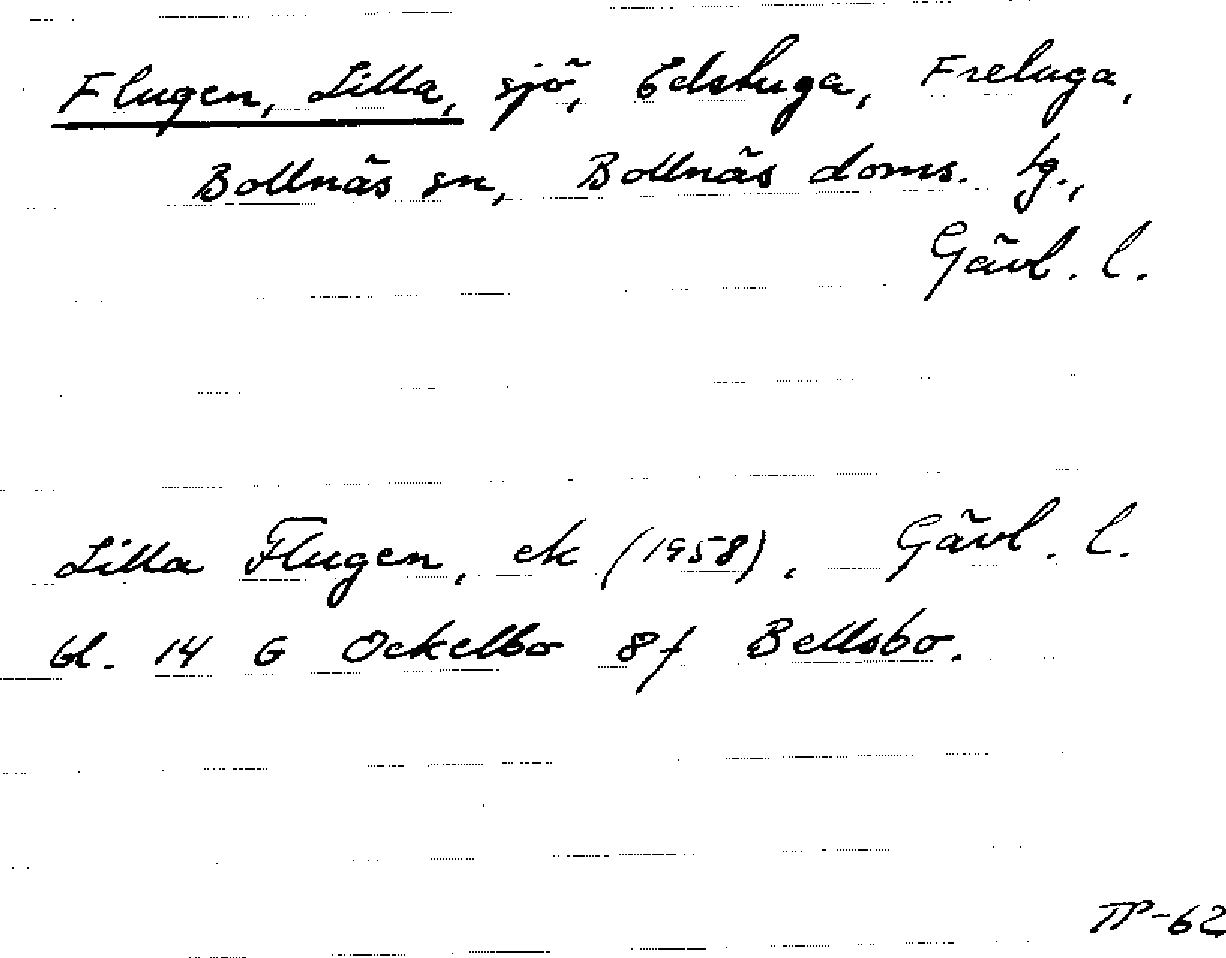 Flugen, Lilla, sjö, Edstuga, Freluga,
Bollnäs sn, Bollnäs doms. tg.,
Gävl. l.
Lilla Flugen, ek (1958), Gävl. l.
bl. 14 G Ockelbo 8f Bellsbo.
TP-62